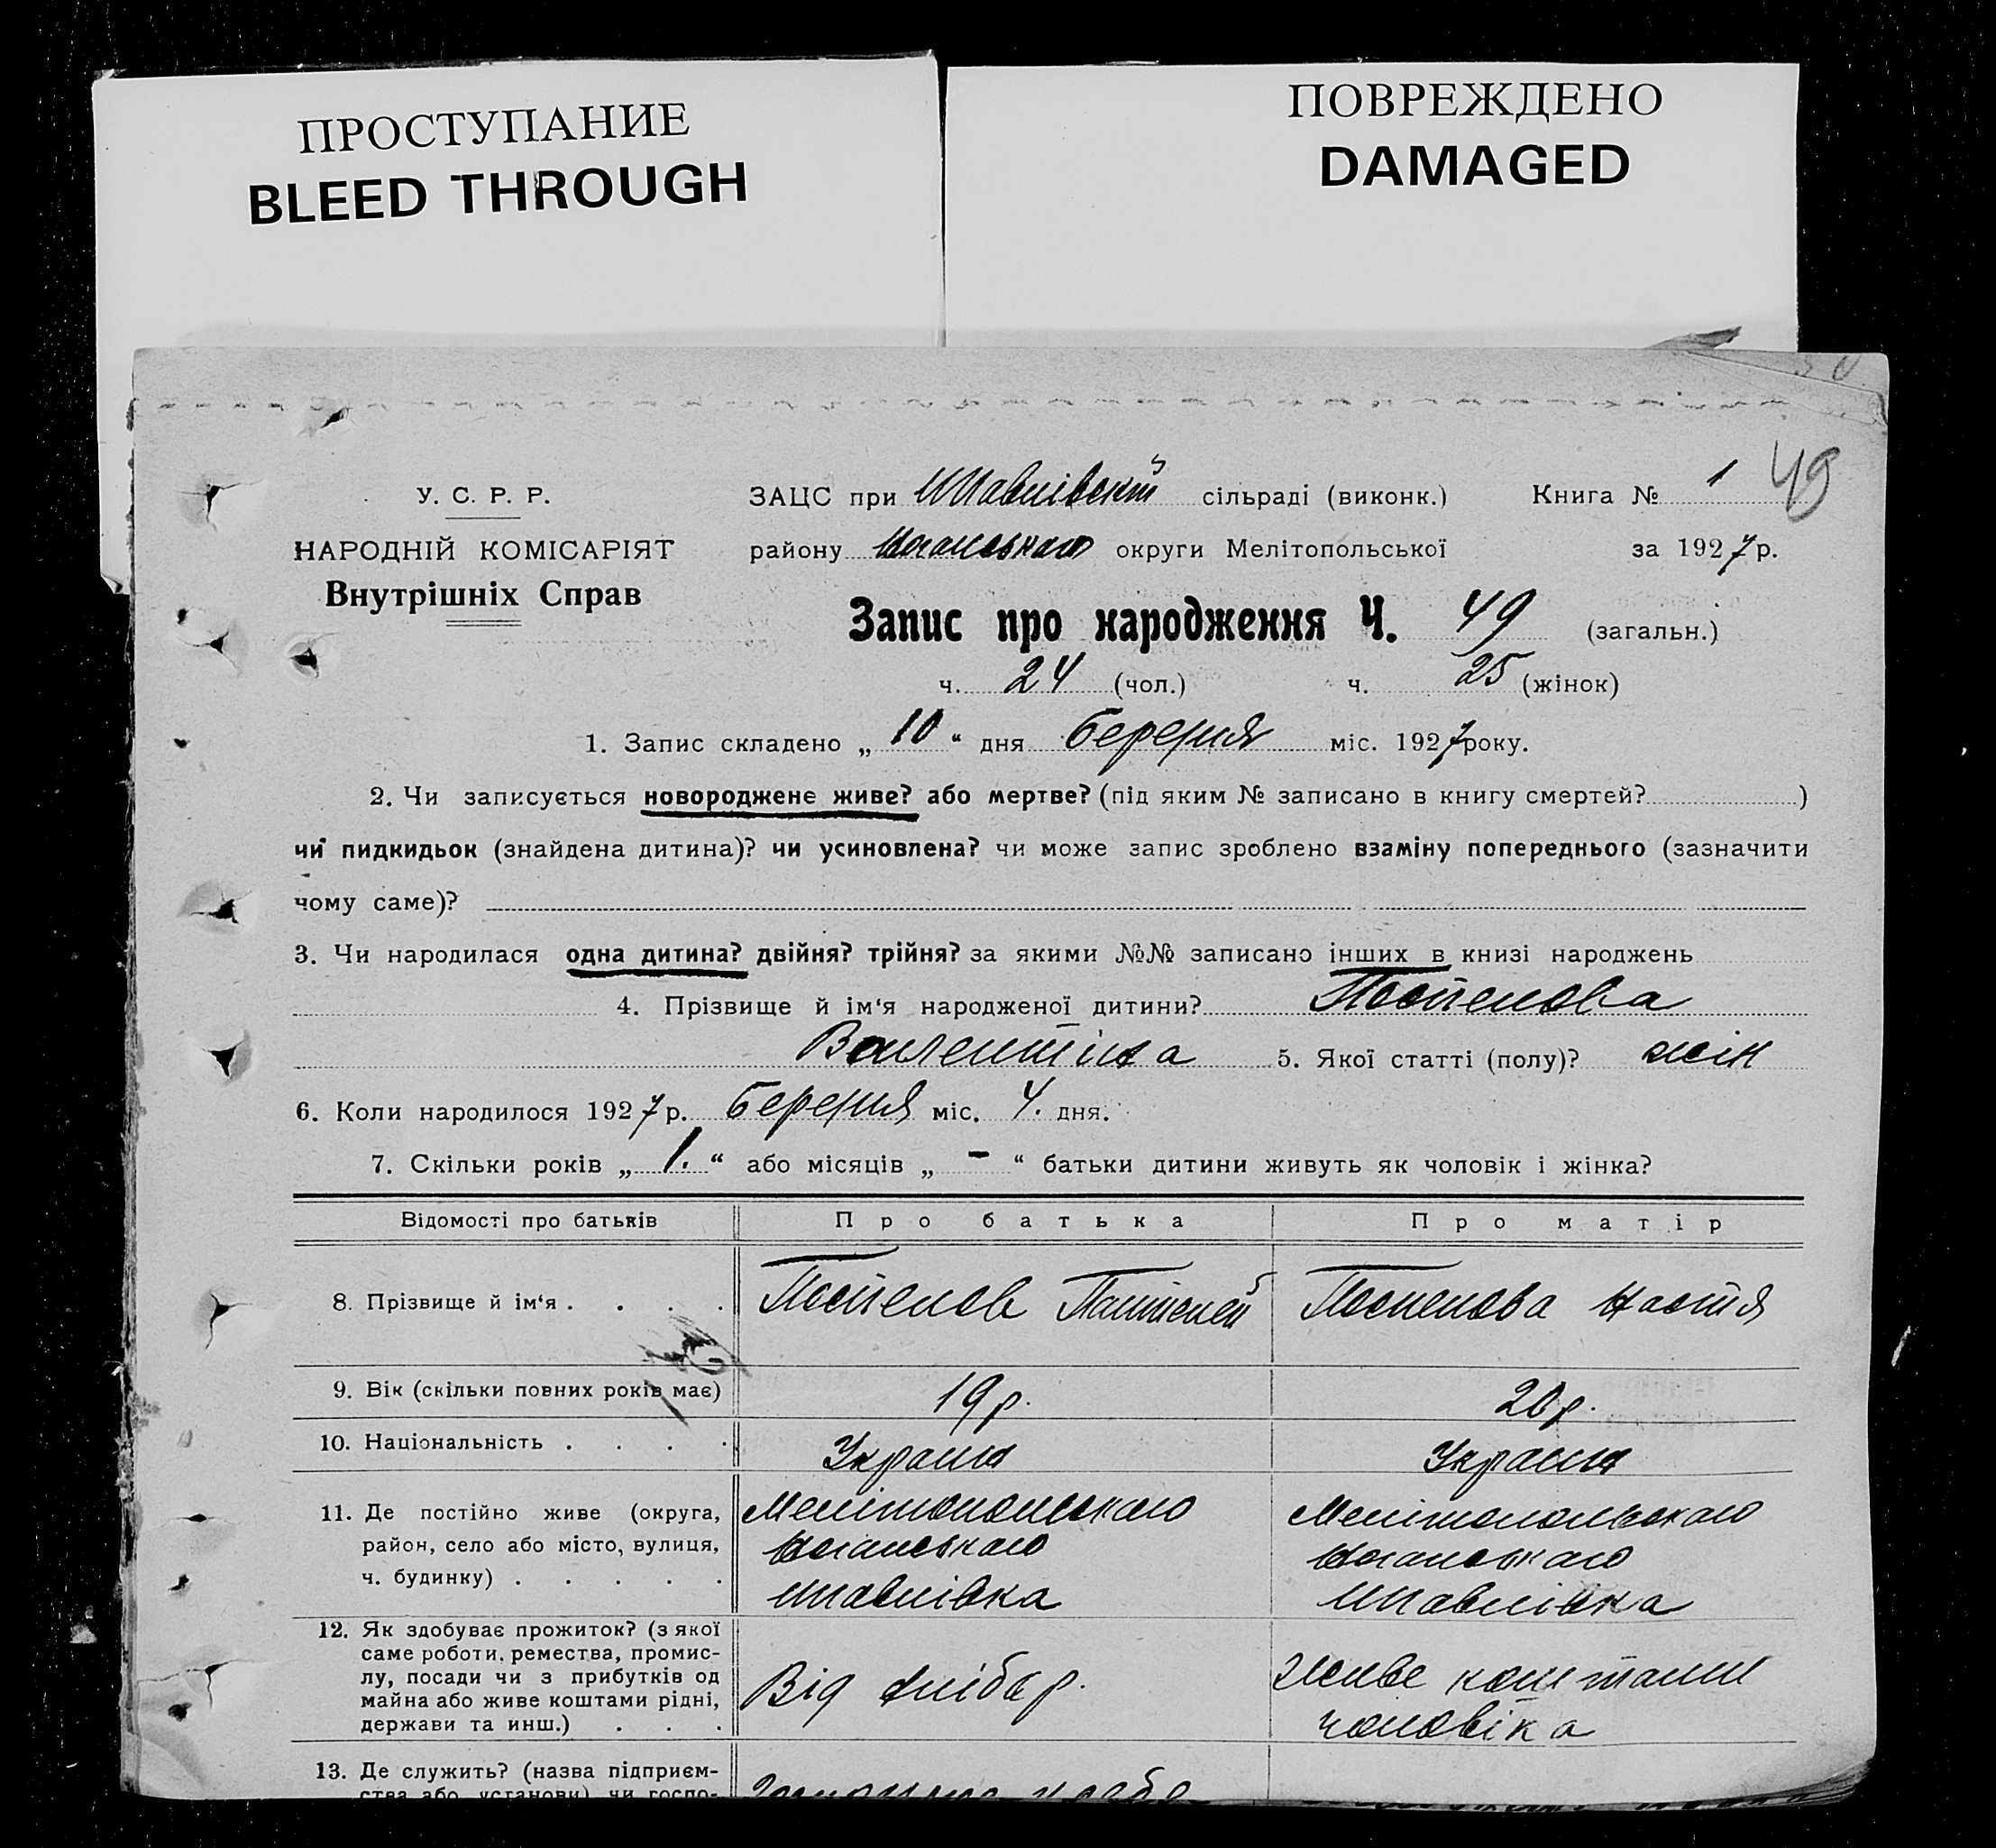 ПРОСТУПАНИЕ
BLEED THROUGH
ПОВРЕЖДЕНО
DAMAGED
У. С. Р. Р.
НАРОДНІЙ КОМІСАРІЯТ
Внутрішніх Справ
ЗАЦС при сільраді (виконк.) Книга № 1 49
району округи Мелітопольської за 1927 р.
Запис про народження Ч. 49 (загальн.)
ч. 24 (чол.) ч. 25 (жінок)
1. Запис складено „ 10 “ дня березня міс. 1927 року.
2. Чи записується новороджене живе? або мертве? (під яким № записано в книгу смертей? )
чи пидкидьок (знайдена дитина)? чи усиновлена? чи може запис зроблено взаміну попереднього (зазначити
чому саме)?
3. Чи народилася одна дитина? двійня? трійня? за якими №№ записано інших в книзі народжень
4. Прізвище й ім‘я народженої дитини? Поспелова
Валентіна 5. Якої статті (полу)? жін
6. Коли народилося 1927 р. березня міс. 4. дня.
7. Скільки років „ 1. “ або місяців „ - “ батьки дитини живуть як чоловік і жінка?
Відомості про батьків Про батька Про матір
8. Прізвище й ім‘я . . . . Поспелов Поспелова Настя
9. Вік (скільки повних років має) 19 р. 20 р.
10. Національність . . . . Україн Україн
11. Де постійно живе (округа,
район, село або місто, вулиця,
ч. будинку) . . . . .
Мелітопольскаго
Ногайськаго
Мелітопольскаго
Ногайськаго
12. Як здобуває прожиток? (з якої
саме роботи, ремества, промис-
лу, посади чи з прибутків од
майна або живе коштами рідні,
держави та инш.) . . .
Від хлібор.
живе коштами
чоловіка
13. Де служить? (назва підприєм-
ства або установи) чи госпо-